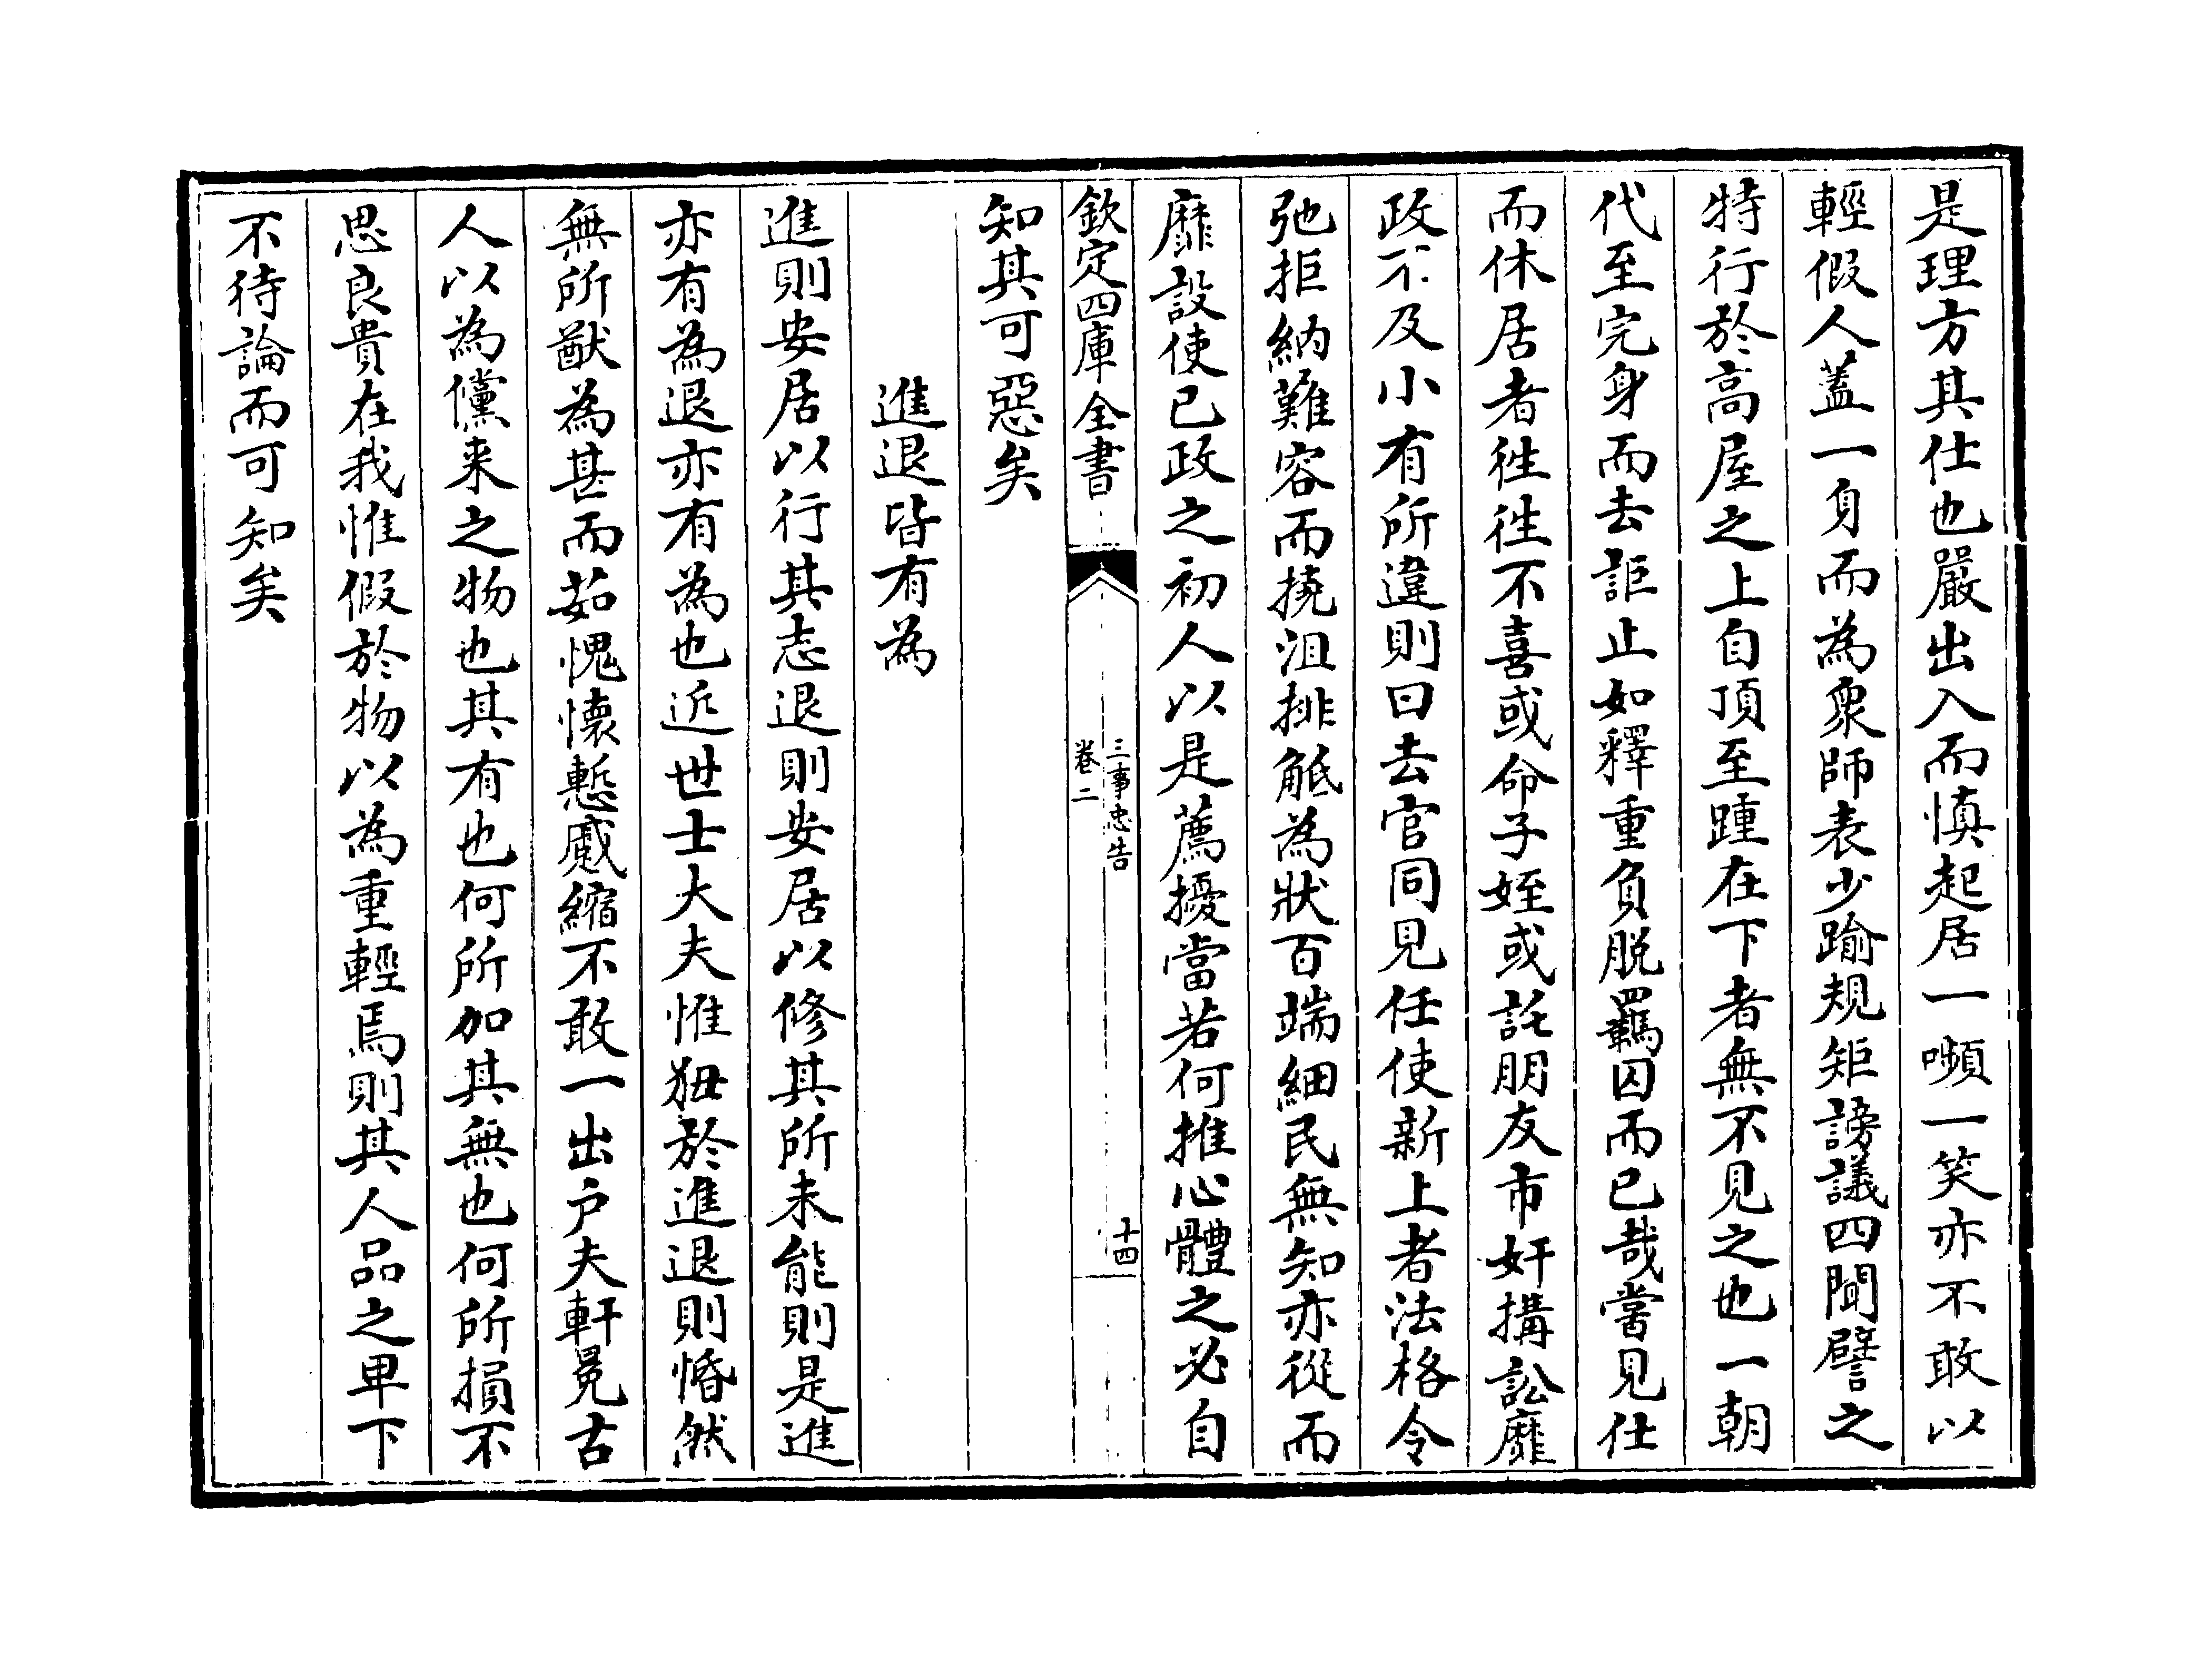 是理方其仕也嚴出入而慎起居一嚬一笑亦不敢以
輕假人蓋一身而為衆師表少踰規矩謗議四聞譬之
特行於高屋之上自頂至踵在下者無不見之也一朝
代至完身而去詎止如釋重負脱羈囚而已哉嘗見仕
而休居者徃徃不喜或命子姪或託朋友市奸搆訟靡
政不及小有所違則曰去官同見任使新上者法格令
弛拒納難容而撓沮排觝為狀百端細民無知亦從而
靡設使已政之初人以是薦擾當若何推心體之必自
欽定四庫全書
三事忠告
卷二
十四
知其可惡矣
進退皆有為
進則安居以行其志退則安居以修其所未能則是進
亦有為退亦有為也近世士大夫惟狃於進退則惛然
無所猷為甚而茹愧懐慙蹙縮不敢一出户夫軒冕古
人以為儻来之物也其有也何所加其無也何所損不
思良貴在我惟假於物以為重輕焉則其人品之卑下
不待論而可知矣